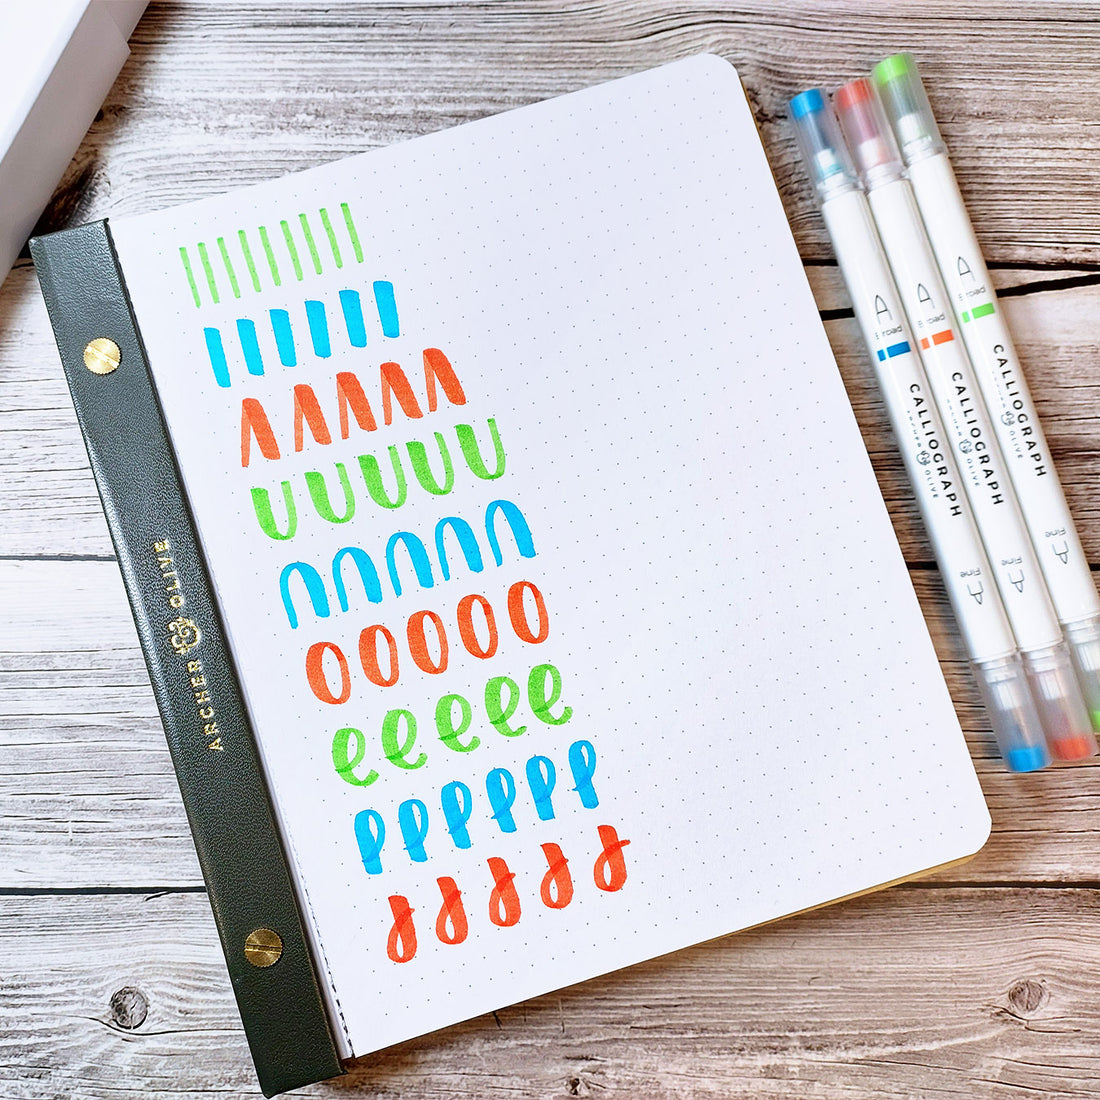 ARCHER & OLIVE
UUUUU
nnnnn
OOOOO
eeeee
A
Broad
CALLIOGRAPH
ARCHER & OLIVE
Fine
A
A
Broad
CALLIOGRAPH
ARCHER & OLIVE
Fine
A
A
Broad
CALLIOGRAPH
ARCHER & OLIVE
Fine
A